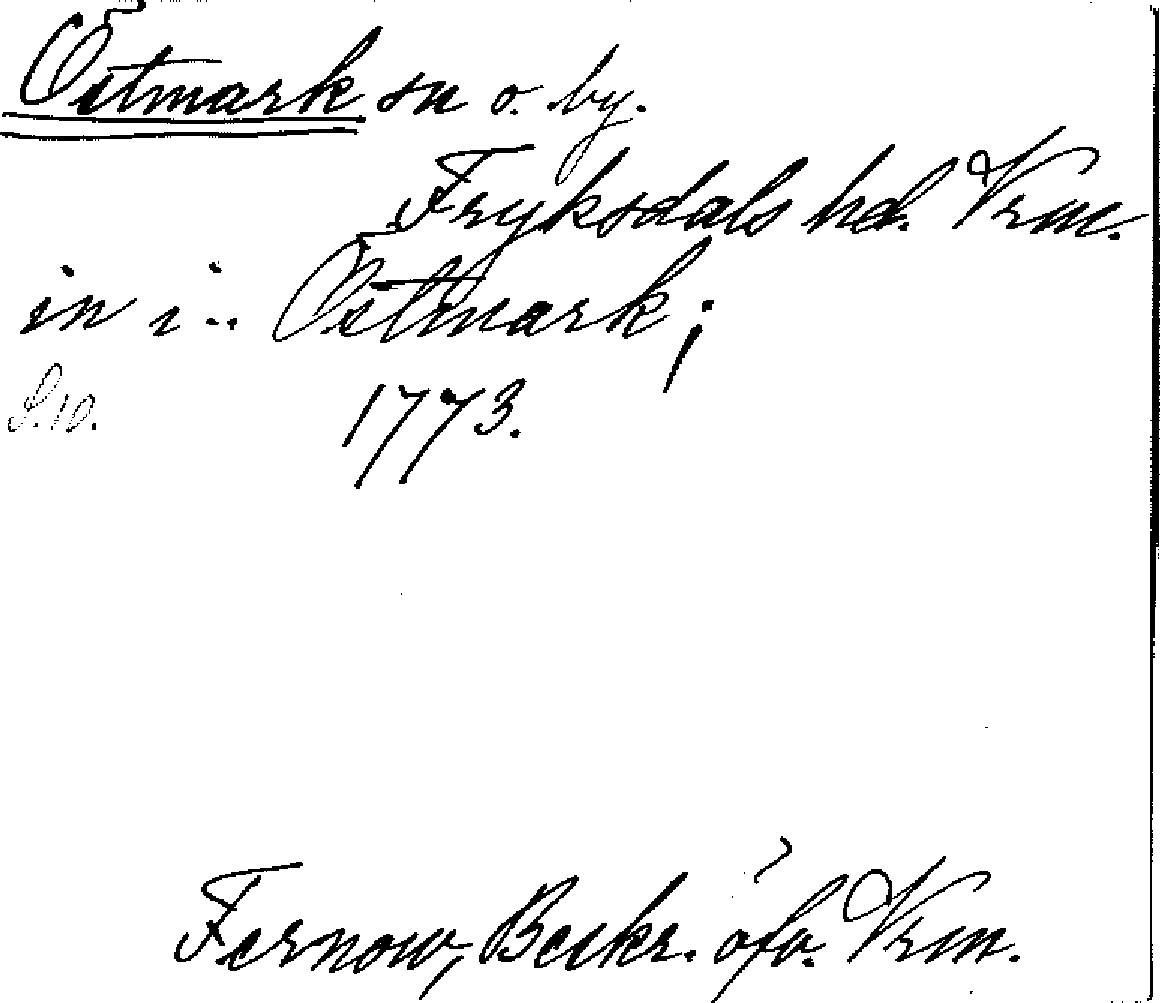 Östmark sn o. by.
Fryksdals hd. Vrm.
in i.. Östmark;
S.10. 1773.
Fernow, Beskr. öfv. Vrm.